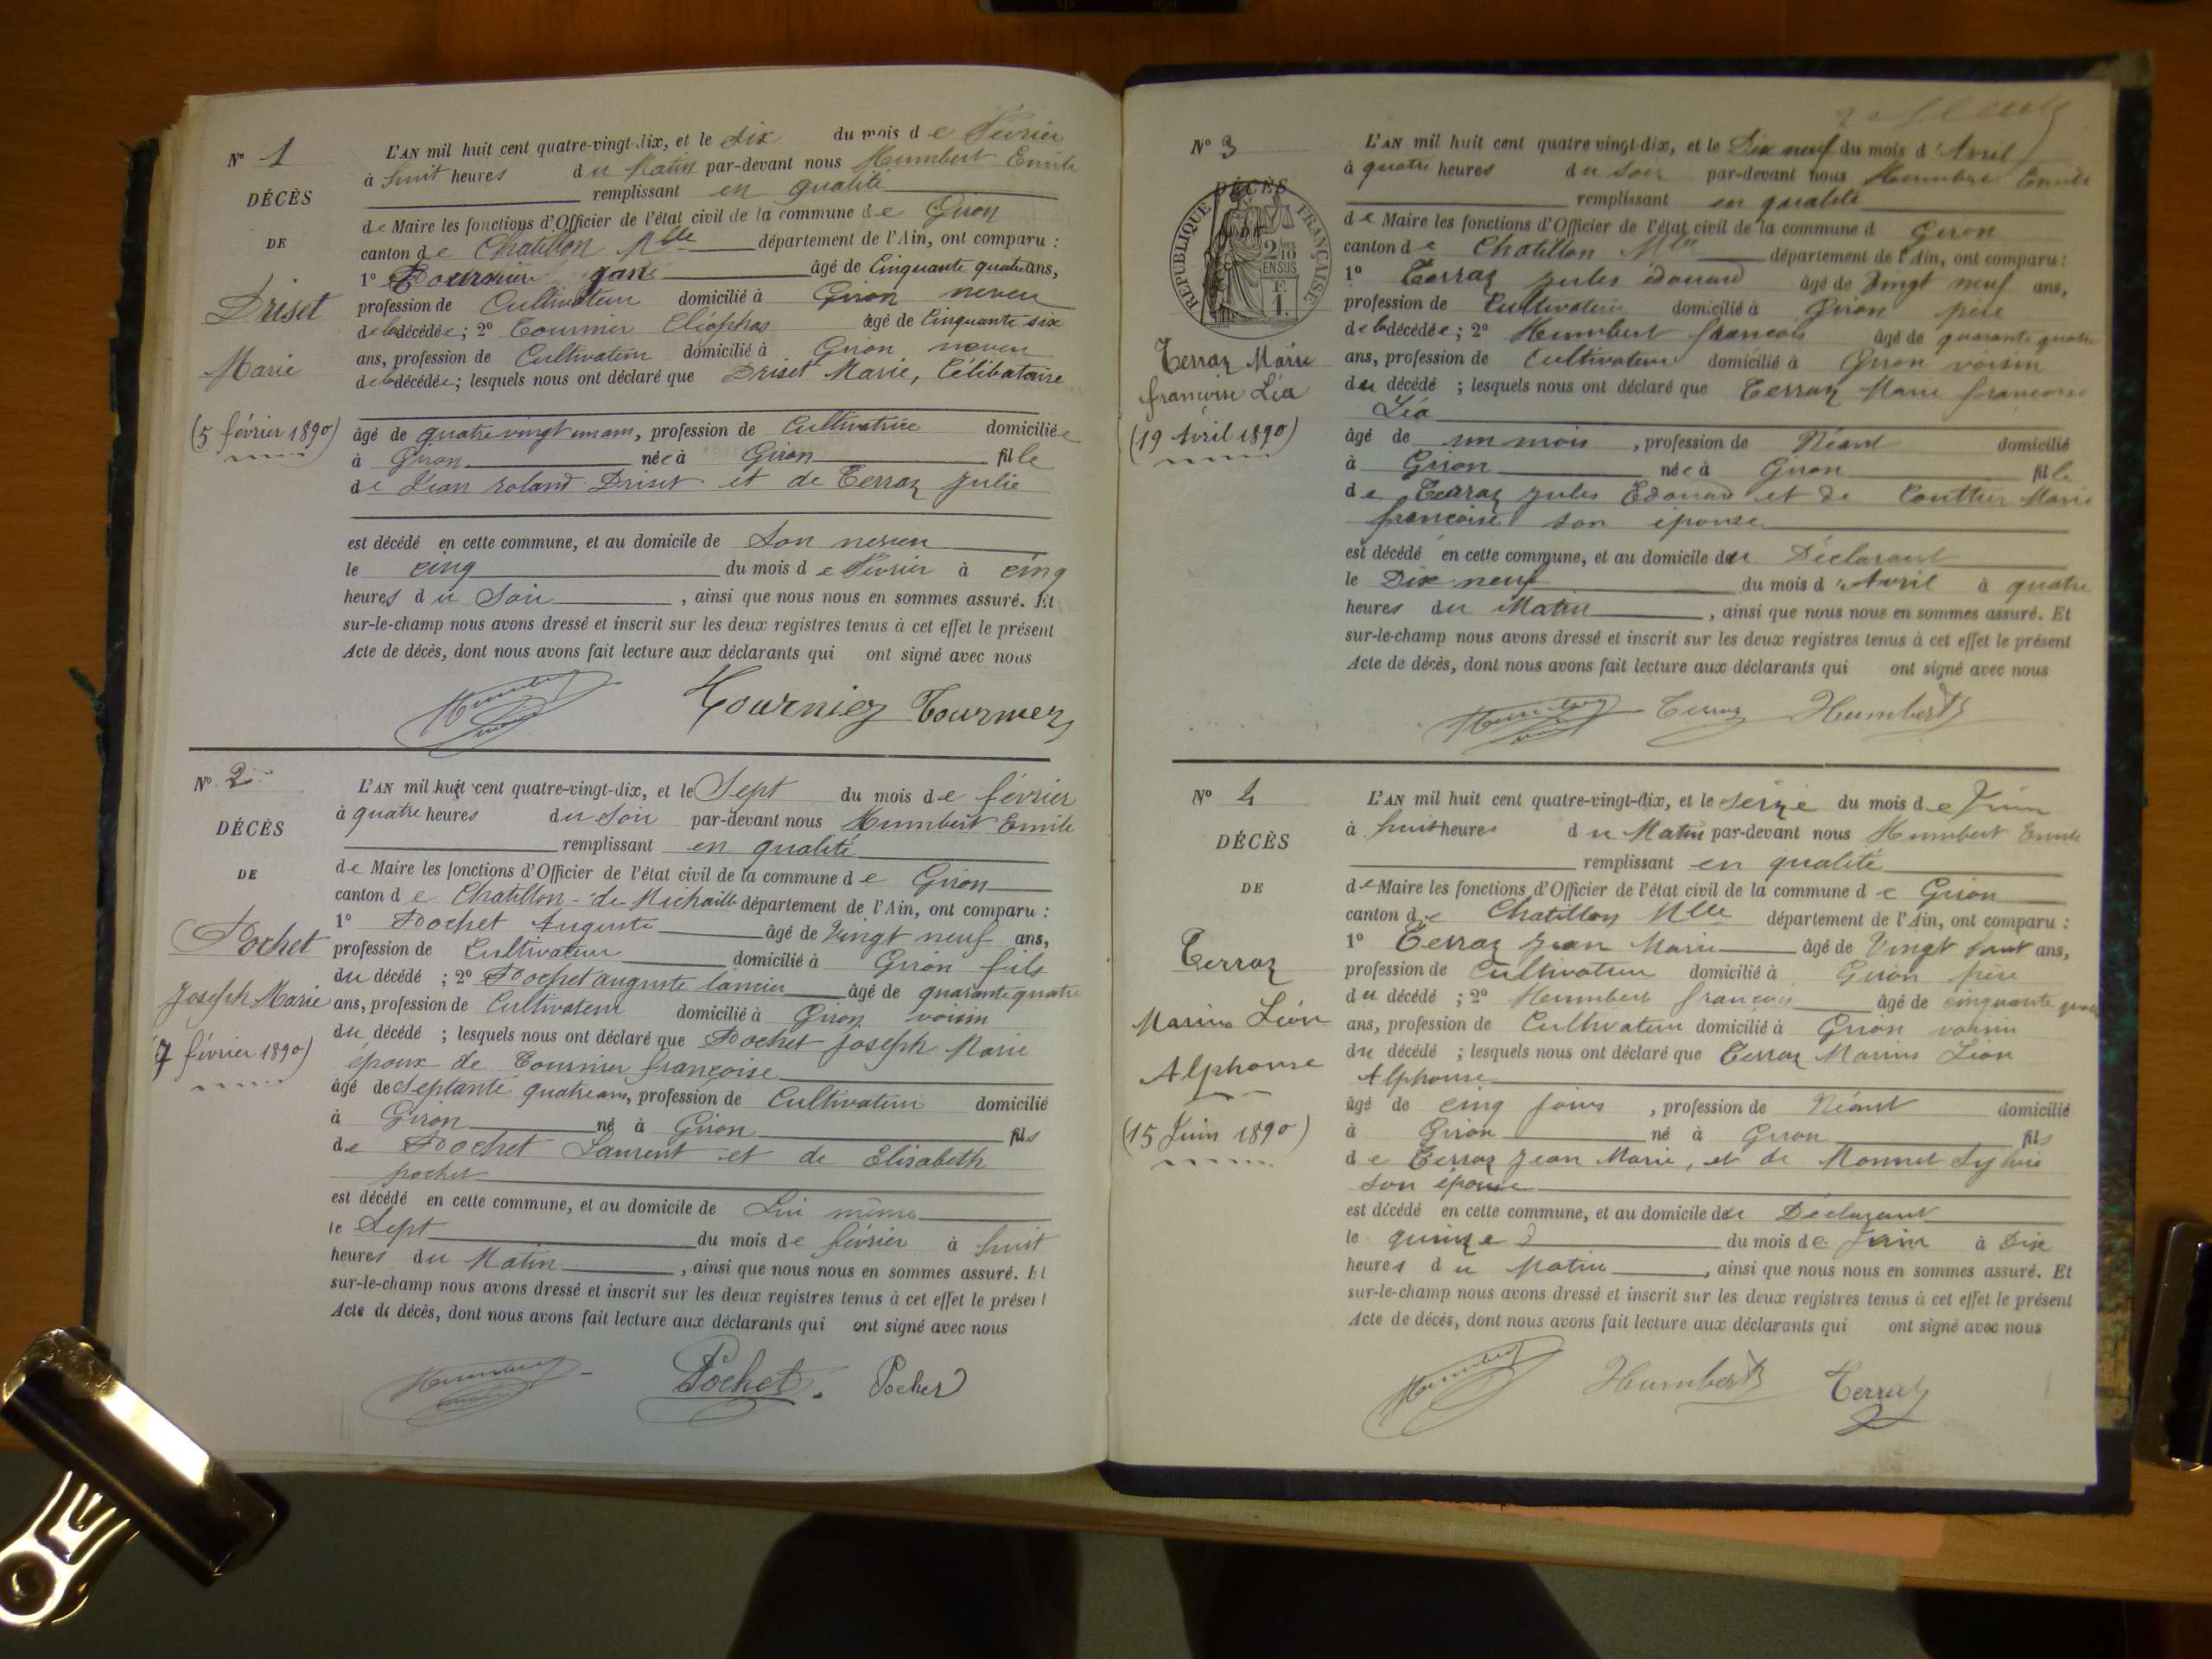 N° 1
DÉCÈS
DE
Driset
Marie
(5 février 1890)
L'AN mil huit cent quatre-vingt-dix, et le six du mois de Février
à huit heures du Matin par-devant nous Humbert Emile
remplissant en qualité
de Maire les fonctions d'Officier de l'état civil de la commune de Giron
canton de Chatillon Mlle département de l'Ain, ont comparu :
1° âgé de Cinquante quatre ans,
profession de Cultivateur domicilié à Giron neveu
de la décédée ; 2° Tournier Cléophas âgé de Cinquante six
ans, profession de Cultivateur domicilié à Giron neveu
de la décédée ; lesquels nous ont déclaré que Driset Marie, Célibataire
âgé de quatre vingt un ans, profession de Cultivatrice domiciliée
à Giron née à Giron fille
de Jean Roland Driset et de Terraz Julie
est décédé en cette commune, et au domicile de Son neveu
le cinq du mois de Février à cinq
heures du Soir, ainsi que nous nous en sommes assuré. Et
sur-le-champ nous avons dressé et inscrit sur les deux registres tenus à cet effet le présent
Acte de décès, dont nous avons fait lecture aux déclarants qui ont signé avec nous
Humbert Tournier Tournier
N° 2
DÉCÈS
DE
Pochet
Joseph Marie
(7 février 1890)
L'AN mil huit cent quatre-vingt-dix, et le Sept du mois de février
à quatre heures du Soir par-devant nous Humbert Emile
remplissant en qualité
de Maire les fonctions d'Officier de l'état civil de la commune de Giron
canton de Chatillon-de-Michaille département de l'Ain, ont comparu :
1° Pochet Auguste âgé de Vingt neuf ans,
profession de Cultivateur domicilié à Giron fils
du décédé ; 2° Pochet auguste âgé de quarante quatre
ans, profession de Cultivateur domicilié à Giron voisin
du décédé ; lesquels nous ont déclaré que Pochet Joseph Marie
époux de Tournier françoise
âgé de Septante quatre ans, profession de Cultivateur domicilié
à Giron né à Giron fils
de Pochet Laurent et de Elisabeth
pochet
est décédé en cette commune, et au domicile de Lui même
le Sept du mois de février à huit
heures du Matin, ainsi que nous nous en sommes assuré. Et
sur-le-champ nous avons dressé et inscrit sur les deux registres tenus à cet effet le présent
Acte de décès, dont nous avons fait lecture aux déclarants qui ont signé avec nous
Humbert Pochet. Pochet
N° 3
DÉCÈS
DE
RÉPUBLIQUE FRANÇAISE
2/10 EN SUS
F. 1.
Terraz Marie
françoise Léa
(19 Avril 1890)
L'AN mil huit cent quatre vingt-dix, et le Dix neuf du mois d'Avril
à quatre heures du Soir par-devant nous Humbert Emile
remplissant en qualité
de Maire les fonctions d'Officier de l'état civil de la commune d Giron
canton de Chatillon Mlle département de l'Ain, ont comparu :
1° Terraz jules édouard âgé de Vingt neuf ans,
profession de Cultivateur domicilié à Giron père
de la décédée ; 2° Humbert françois âgé de quarante quatre
ans, profession de Cultivateur domicilié à Giron voisin
du décédé ; lesquels nous ont déclaré que Terraz Marie françoise
Léa
âgé de un mois, profession de Néant domicilié
à Giron née à Giron fille
de Terraz Jules Edouard et de Marie
françoise son épouse
est décédé en cette commune, et au domicile du Déclarant
le Dix neuf du mois d'Avril à quatre
heures du Matin, ainsi que nous nous en sommes assuré. Et
sur-le-champ nous avons dressé et inscrit sur les deux registres tenus à cet effet le présent
Acte de décès, dont nous avons fait lecture aux déclarants qui ont signé avec nous
Humbert Terraz Humbert
N° 4
DÉCÈS
DE
Terraz
Marius Léon
Alphonse
(15 Juin 1890)
L'AN mil huit cent quatre-vingt-dix, et le seize du mois de Juin
à huit heures du Matin par-devant nous Humbert Emile
remplissant en qualité
de Maire les fonctions d'Officier de l'état civil de la commune de Giron
canton de Chatillon Mlle département de l'Ain, ont comparu :
1° Terraz Jean Marie âgé de Vingt ans,
profession de Cultivateur domicilié à Giron père
du décédé ; 2° Humbert françois âgé de cinquante
ans, profession de Cultivateur domicilié à Giron voisin
du décédé ; lesquels nous ont déclaré que Terraz Marius Léon
Alphonse
âgé de cinq jours, profession de Néant domicilié
à Giron né à Giron fils
de Terraz Jean Marie, et de Monnet Sylvie
son épouse
est décédé en cette commune, et au domicile du Déclarant
le quinze du mois de Juin à Dix
heures du Matin, ainsi que nous nous en sommes assuré. Et
sur-le-champ nous avons dressé et inscrit sur les deux registres tenus à cet effet le présent
Acte de décès, dont nous avons fait lecture aux déclarants qui ont signé avec nous
Humbert Humbert Terraz